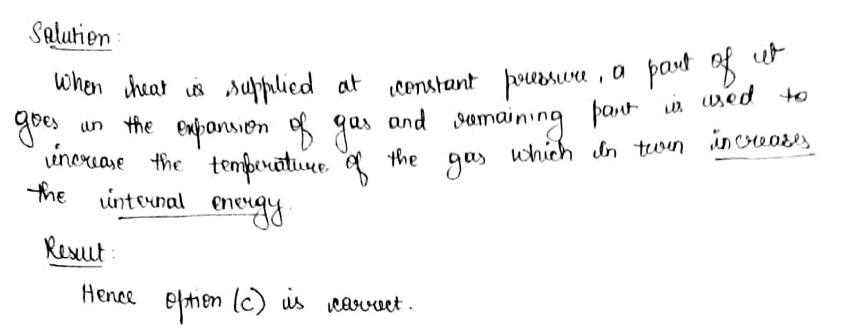 Solution:
When heat is supplied at constant pressure, a part of it
goes in the expansion of gas and remaining part is used to
increase the temperature of the gas which in turn increases
the internal energy.
Result:
Hence option (c) is correct.